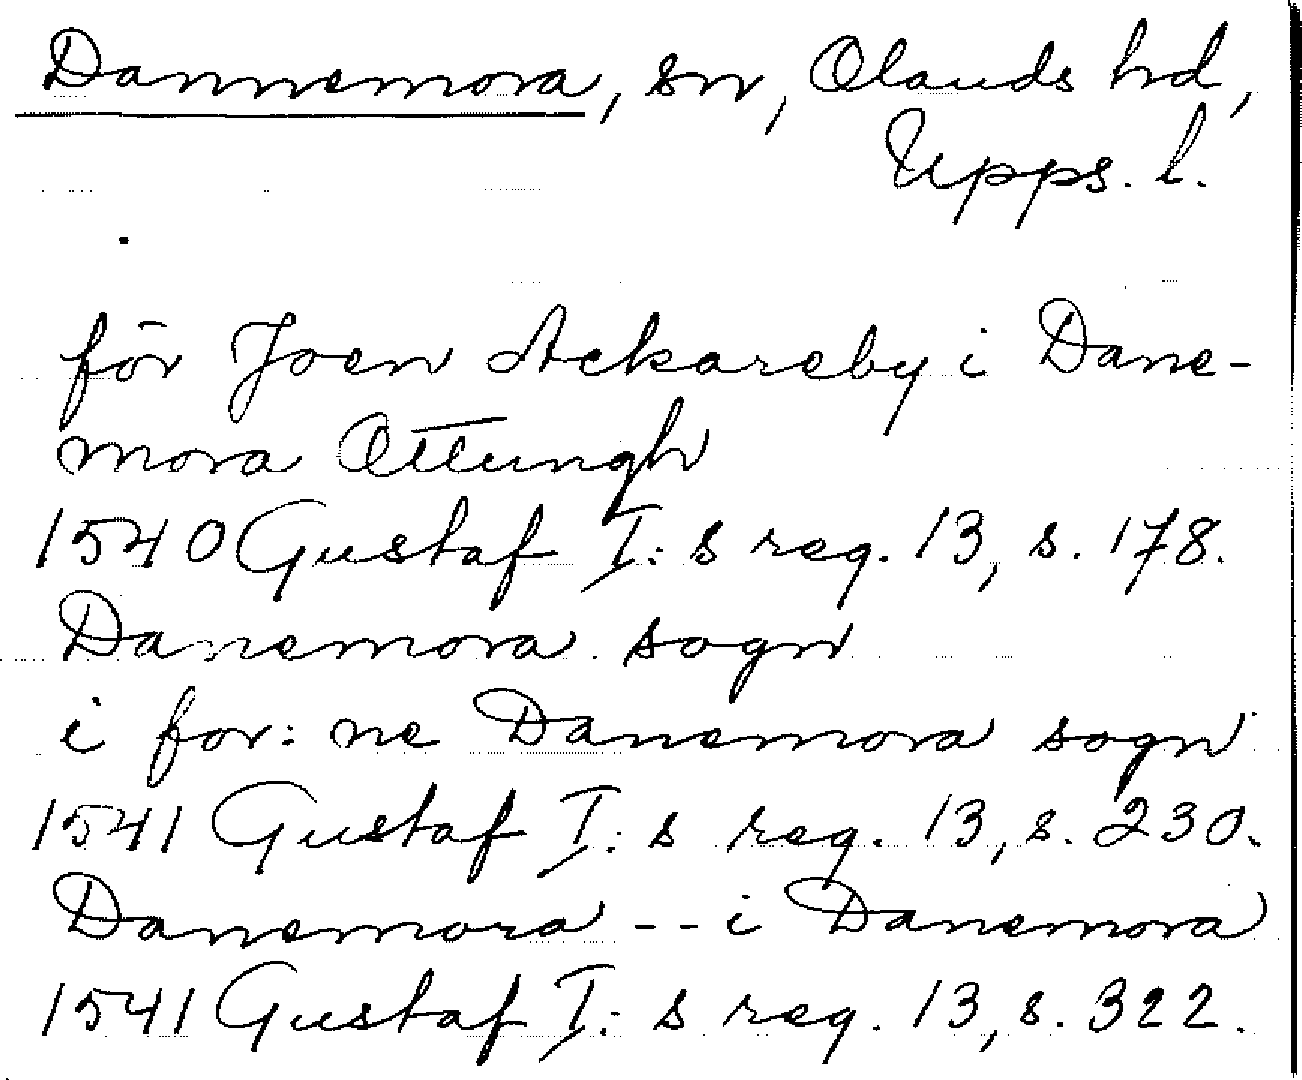 Dannemora, sn, Olands hd,
Upps. l.
för Joen Ackareby i Dane-
mora Ottungh
1540 Gustaf I:s reg. 13, s. 178.
Danemora sogn
i for:ne Danemora sogn
1541 Gustaf I:s reg. 13, s. 230.
Danemora -- i Danemora
1541 Gustaf I:s reg. 13, s. 322.